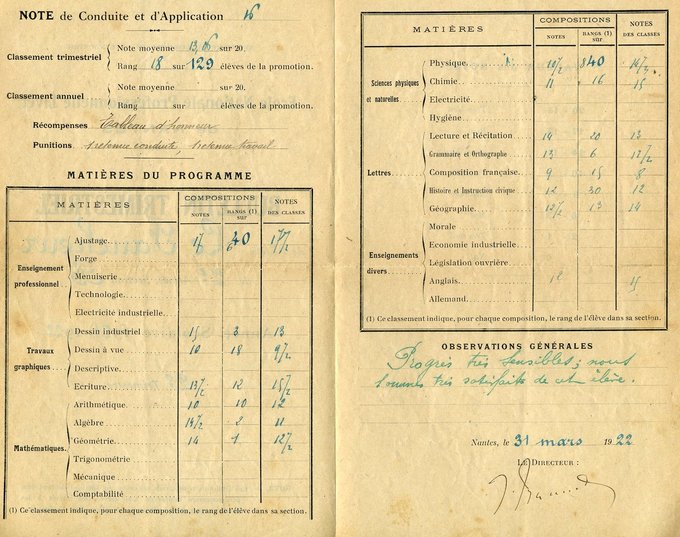 NOTE de Conduite et d'Application 16
Classement trimestriel
Note moyenne 13,06 sur 20.
Rang 18 sur 129 élèves de la promotion.
Classement annuel
Note moyenne sur 20.
Rang sur élèves de la promotion.
Récompenses Tableau d'honneur
Punitions 1 retenue conduite, 1 retenue travail
MATIÈRES DU PROGRAMME
MATIÈRES COMPOSITIONS NOTES DES CLASSES
NOTES RANGS (1) sur
Enseignement professionnel
Ajustage 17 40 17 1/2
Forge
Menuiserie
Technologie
Electricité industrielle
Travaux graphiques
Dessin industriel 15 3 13
Dessin à vue 10 18 9 1/2
Descriptive
Ecriture 13 1/2 12 15 1/2
Mathématiques
Arithmétique 10 10 12
Algèbre 14 1/2 2 11
Géométrie 14 1 12 1/2
Trigonométrie
Mécanique
Comptabilité
(1) Ce classement indique, pour chaque composition, le rang de l'élève dans sa section.
MATIÈRES COMPOSITIONS NOTES DES CLASSES
NOTES RANGS (1) sur
Sciences physiques et naturelles
Physique 10 1/2 8 40
Chimie 11 16 15
Electricité
Hygiène
Lettres
Lecture et Récitation 14 20 13
Grammaire et Orthographe 13 6 12 1/2
Composition française 9 15 8
Histoire et Instruction civique 12 30 12
Géographie 12 1/2 13 14
Enseignements divers
Morale
Economie industrielle
Législation ouvrière
Anglais 12 15
Allemand
(1) Ce classement indique, pour chaque composition, le rang de l'élève dans sa section.
OBSERVATIONS GÉNÉRALES
Progrès très sensibles ; nous
sommes très satisfaits de cet élève.
Nantes, le 31 mars 1922
LE DIRECTEUR :